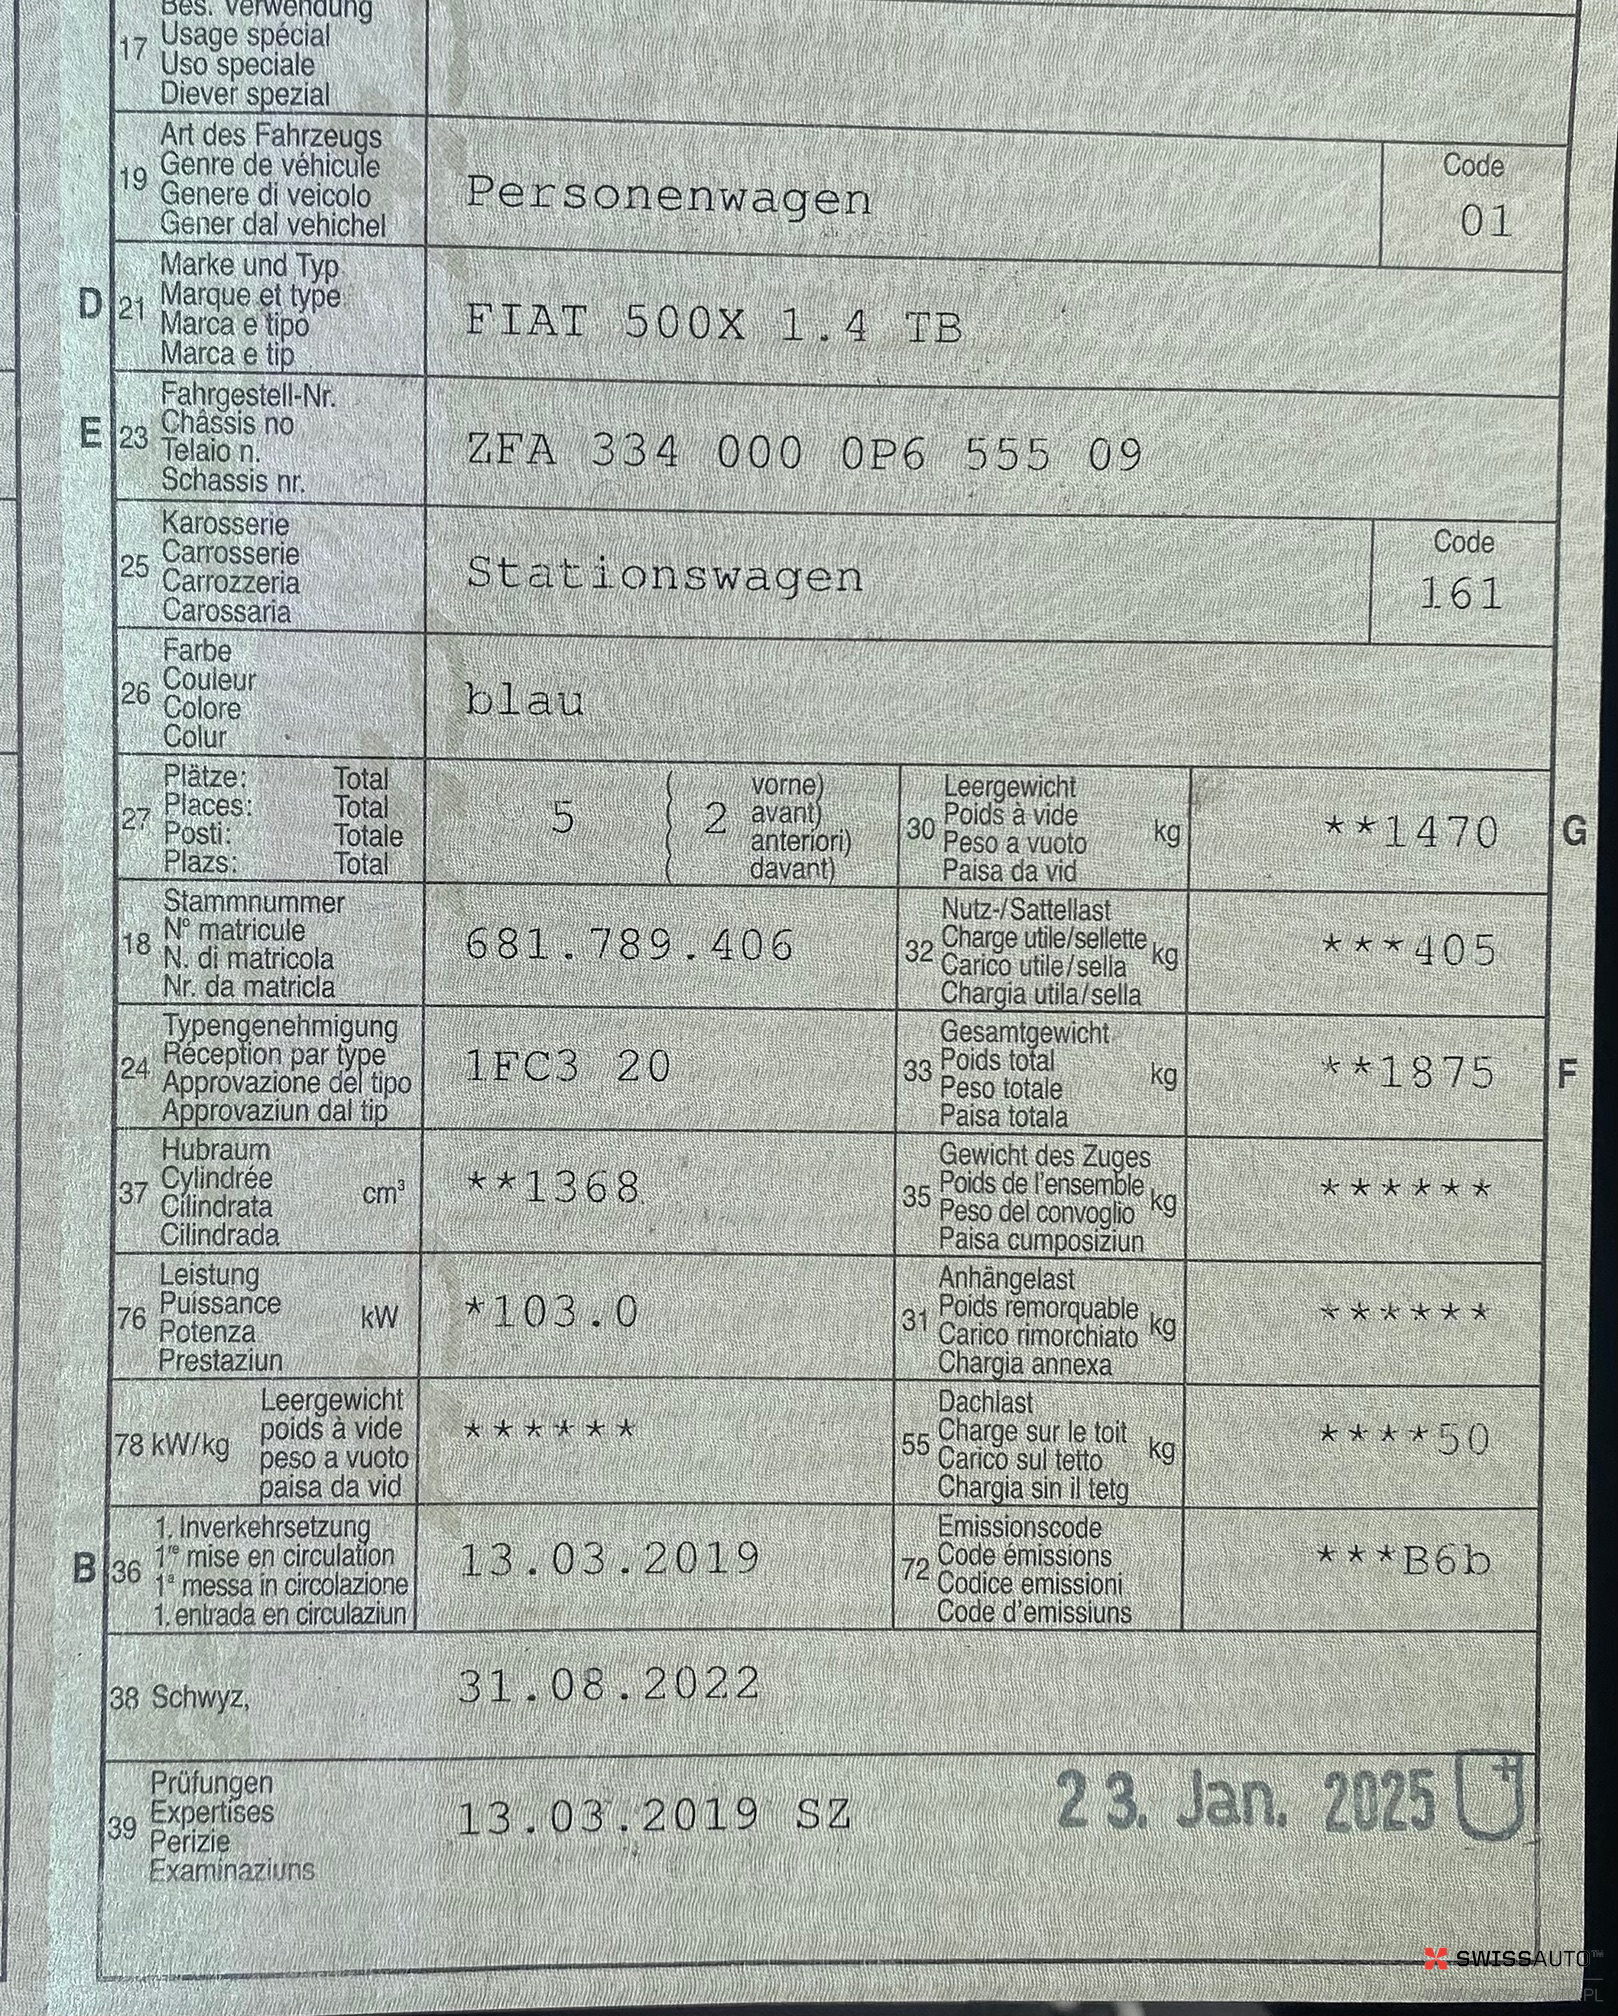 Bes. Verwendung
17 Usage spécial
Uso speciale
Diever spezial
Art des Fahrzeugs
19 Genre de véhicule
Genere di veicolo
Gener dal vehichel
Personenwagen
Code
01
D 21 Marke und Typ
Marque et type
Marca e tipo
Marca e tip
FIAT 500X 1.4 TB
E 23 Fahrgestell-Nr.
Châssis no
Telaio n.
Schassis nr.
ZFA 334 000 0P6 555 09
25 Karosserie
Carrosserie
Carrozzeria
Carossaria
Stationswagen
Code
161
26 Farbe
Couleur
Colore
Colur
blau
27 Plätze: Total
Places: Total
Posti: Totale
Plazs: Total
5 ( 2 vorne)
avant)
anteriori)
davant)
30 Leergewicht
Poids à vide
Peso a vuoto
Paisa da vid
kg
**1470
G
18 Stammnummer
N° matricule
N. di matricola
Nr. da matricla
681.789.406
32 Nutz-/Sattellast
Charge utile/sellette
Carico utile/sella
Chargia utila/sella
kg
***405
24 Typengenehmigung
Réception par type
Approvazione del tipo
Approvaziun dal tip
1FC3 20
33 Gesamtgewicht
Poids total
Peso totale
Paisa totala
kg
**1875
F
37 Hubraum
Cylindrée
Cilindrata
Cilindrada
cm³
**1368
35 Gewicht des Zuges
Poids de l'ensemble
Peso del convoglio
Paisa cumposiziun
kg
******
76 Leistung
Puissance
Potenza
Prestaziun
kW
*103.0
31 Anhängelast
Poids remorquable
Carico rimorchiato
Chargia annexa
kg
******
78 kW/kg
Leergewicht
poids à vide
peso a vuoto
paisa da vid
******
55 Dachlast
Charge sur le toit
Carico sul tetto
Chargia sin il tetg
kg
****50
B 36 1. Inverkehrsetzung
1re mise en circulation
1a messa in circolazione
1. entrada en circulaziun
13.03.2019
72 Emissionscode
Code émissions
Codice emissioni
Code d'emissiuns
***B6b
38 Schwyz,
31.08.2022
39 Prüfungen
Expertises
Perizie
Examinaziuns
13.03.2019 SZ
23. Jan. 2025
SWISSAUTO™